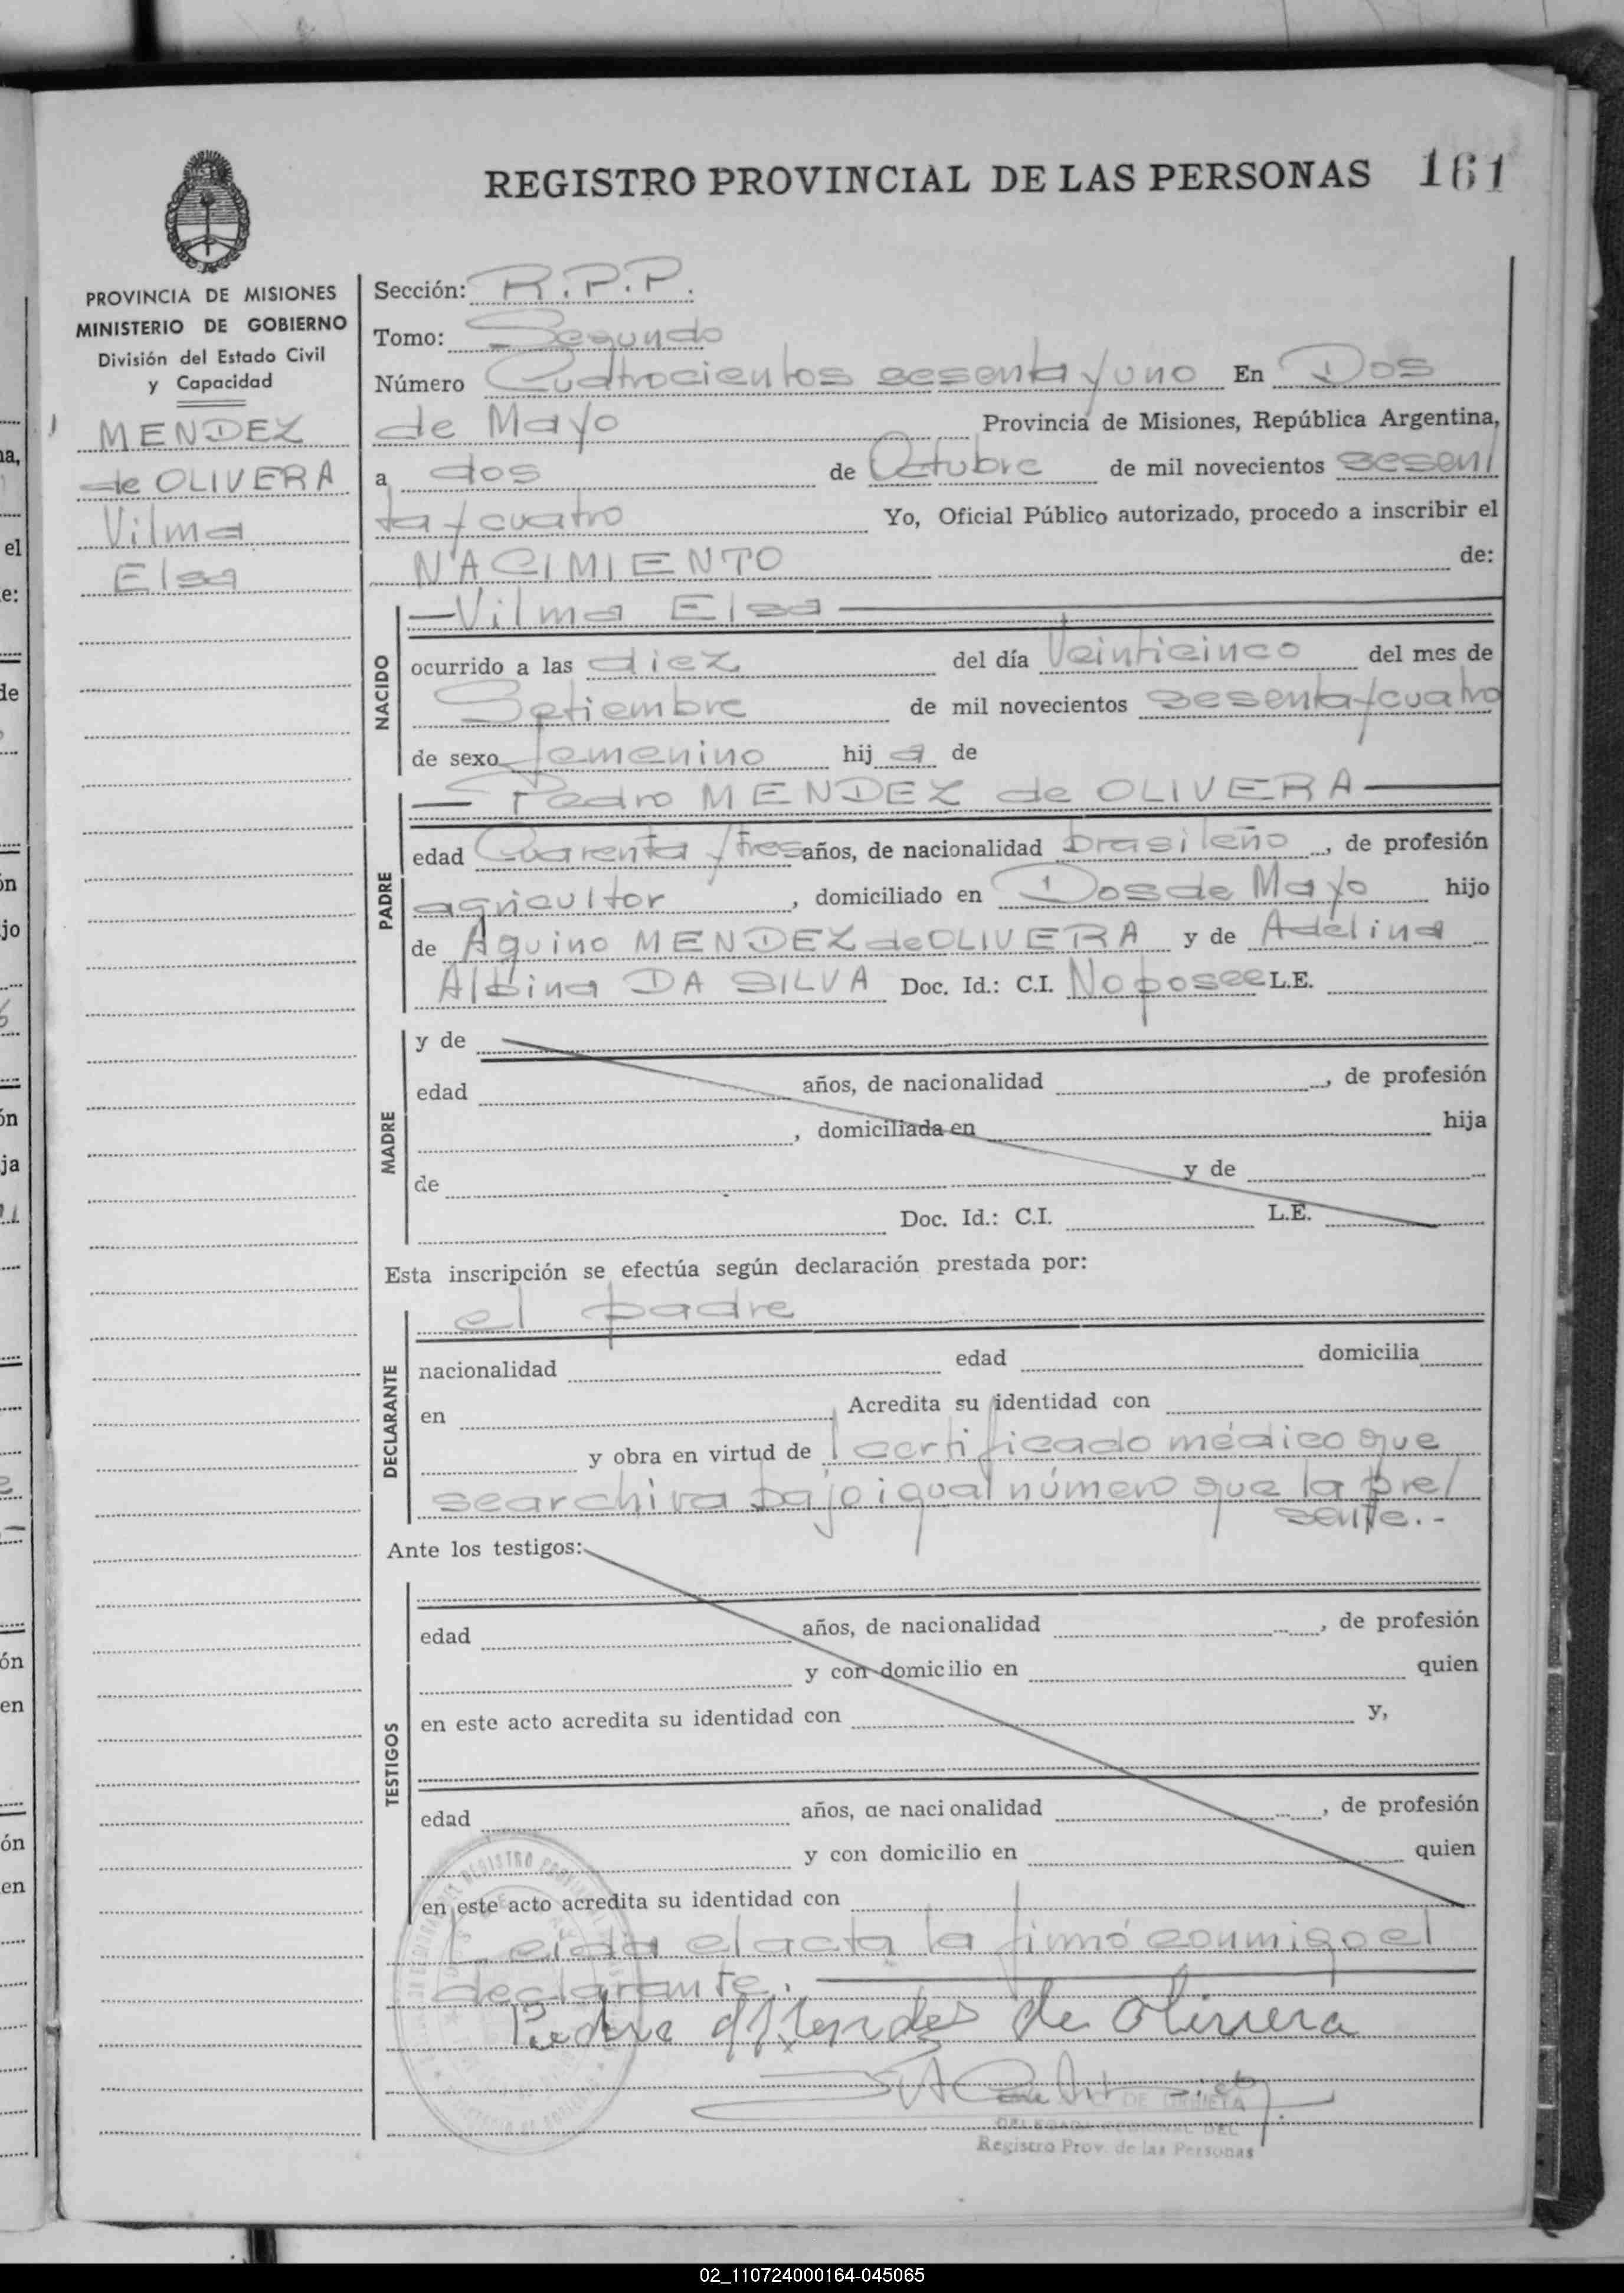 REGISTRO PROVINCIAL DE LAS PERSONAS 161
PROVINCIA DE MISIONES
MINISTERIO DE GOBIERNO
División del Estado Civil
y Capacidad
MENDEZ
de OLIVERA
Vilma
Elsa
Sección: R.P.P.
Tomo: Segundo
Número Cuatrocientos sesenta y uno En Dos
de Mayo Provincia de Misiones, República Argentina,
a dos de Octubre de mil novecientos sesen/
ta y cuatro Yo, Oficial Público autorizado, procedo a inscribir el
NACIMIENTO de:
NACIDO
—Vilma Elsa—
ocurrido a las diez del día Veinticinco del mes de
Setiembre de mil novecientos sesenta y cuatro
de sexo femenino hij a de
PADRE
— Pedro MENDEZ de OLIVERA —
edad Cuarenta y tres años, de nacionalidad brasileño, de profesión
agricultor, domiciliado en Dos de Mayo hijo
de Aquino MENDEZ de OLIVERA y de Adelina
Albina DA SILVA Doc. Id.: C.I. No posee L.E.
MADRE
y de
edad años, de nacionalidad , de profesión
, domiciliada en hija
de y de
Doc. Id.: C.I. L.E.
Esta inscripción se efectúa según declaración prestada por:
DECLARANTE
el padre
nacionalidad edad domicilia
en Acredita su identidad con
y obra en virtud de / certificado médico que
se archiva bajo igual número que la pre/
sente.-
Ante los testigos:
TESTIGOS
edad años, de nacionalidad , de profesión
y con domicilio en quien
en este acto acredita su identidad con y,
edad años, de nacionalidad , de profesión
y con domicilio en quien
en este acto acredita su identidad con
Leida el acta la firmó conmigo el
declarante.
Pedro Mendes de Olivera
DE URBIETA
DELEGADA REGIONAL DEL
Registro Prov. de las Personas
02_110724000164-045065